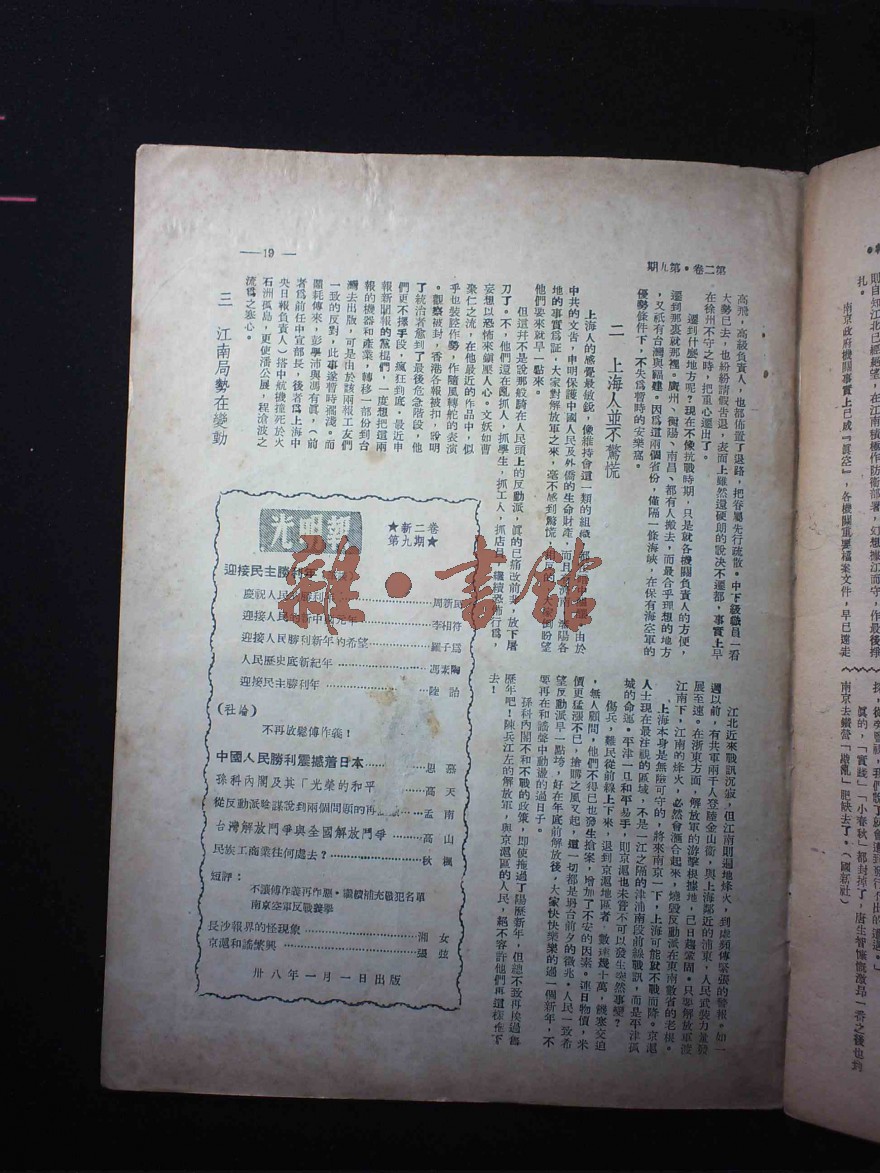 第二卷・第九期
— 19 —
高飛，高級負責人，也都佈置了退路，把眷屬先行疏散。中下級職員一看
大勢已去，也紛紛請假告退，表面上雖然還硬朗的說決不遷都，事實上早
在徐州不守之時，把重心遷出了。
遷到什麼地方呢？現在不像抗戰時期，只是就各機關負責人的方便，
遷到那裏就那裡。廣州、衡陽、南昌、都有人搬去，而最合乎理想的地方
，又祇有台灣與福建。因爲這兩個省份，僅隔一條海峽，在保有海空軍的
優勢條件下，不失爲暫時的安樂窩。
二 上海人並不驚慌
上海人的感覺最敏銳，像維持會這一類的組織，都
由於
中共的文告，申明保護中國人民及外僑的生命財產，而且
濟南
瀋陽各
地的事實爲証，大家對解放軍之來，毫不感到驚慌，相反的
倒盼望
他們要來就早一點來。
但這并不是說那般騎在人民頭上的反動派，眞的已痛改前
，放下屠
刀了。不，他們還在亂抓人，抓學生，抓工人，抓店員，繼續恐怖行爲，
妄想以恐怖來鎭壓人心。文妖如曹
聚仁之流，在他最近的作品中，似
乎也裝腔作勢，作隨風轉舵的表演
。觀察被封，香港各報被扣，說明
了統治者愈到了最後危急階段，他
們更不擇手段，瘋狂到底。最近申
報新聞報的黨棍們，一度想把這兩
報的機器和產業，轉移一部份到台
灣去出版，可是由於該兩報工友們
一致的反對，此事遂暫時擱淺。而
噩耗傳來，彭學沛與馮有眞，（前
者爲前任中宣部長，後者爲上海中
央日報負責人）搭中航機撞死於火
石洲孤島，更使潘公展，程滄波之
流爲之寒心。
三 江南局勢在變動
江北近來戰訊沉寂，但江南則遍地烽火，到處頻傳緊張的警報。如一
週以前，有共軍兩千人登陸金山衛，與上海鄰近的浦東，人民武裝力量發
展至速。在浙東方面，解放軍的游擊根據地，已日趨鞏固。只要解放軍渡
江南下，江南的烽火，必然會滙合起來，燒毀反動派在東南數省的老根。
上海本身是無險可守的，將來南京一下，上海可能就不戰而降。京滬
人士現在最注視的區域，不是一江之隔的津浦南段前線戰訊，而是平津孤
城的命運。平津一旦和平易手，則京滬也未嘗不可以發生突然事變？
傷兵，難民從前線上下來，退到京滬地區者，數逾幾十萬，饑寒交迫
，無人顧問，他們不得已也發生搶案，增加了不安的因素。連日物價，米
價更猛漲不已，搶購之風又起，這一切都是垮台前夕的徵兆。人民一致希
望反動派早一點垮，好在年底前解放後，大家快快樂樂的過一個新年，不
要再在和謠聲中動盪的過日子。
孫科內閣不和不戰的政策，即使拖過了陽歷新年，但總不致再挨過舊
歷年吧！陳兵江左的解放軍，與京滬區的人民，絕不容許他們再這樣拖下
去！
光明報
★新二卷
第九期★
迎接民主勝利年
慶祝人民
勝利
周新民
迎接人民的新中國元年
李相符
迎接人民勝利新年的希望
羅子爲
人民歷史底新紀年
馮素陶
迎接民主勝利年
陸詒
（社論）
不再放鬆傅作義！
中國人民勝利震撼着日本
思慕
孫科內閣及其「光榮的和平
高天
從反動派唸謀說到兩個問題的再
孟南
台灣解放鬥爭與全國解放鬥爭
高山
民族工商業往何處去？
秋楓
短評：
不讓傅作義再作惡・議續補充戰犯名單
南京空軍反戰義舉
長沙報界的怪現象
湘女
京滬和謠繁興
張弦
卅八年一月一日出版
雜・書館
則自知江北已經絕望，在江南積極作防衛部署，幻想據江而守，作最後掙
扎。
南京政府機關事實上已成『眞空』，各機關重要檔案文件，早已遠走
眞的，「實踐」「小春秋」都封掉了，唐生智慷慨激昂一番之後也到
南京去鑽營「戡亂」肥缺去了。（國新社）